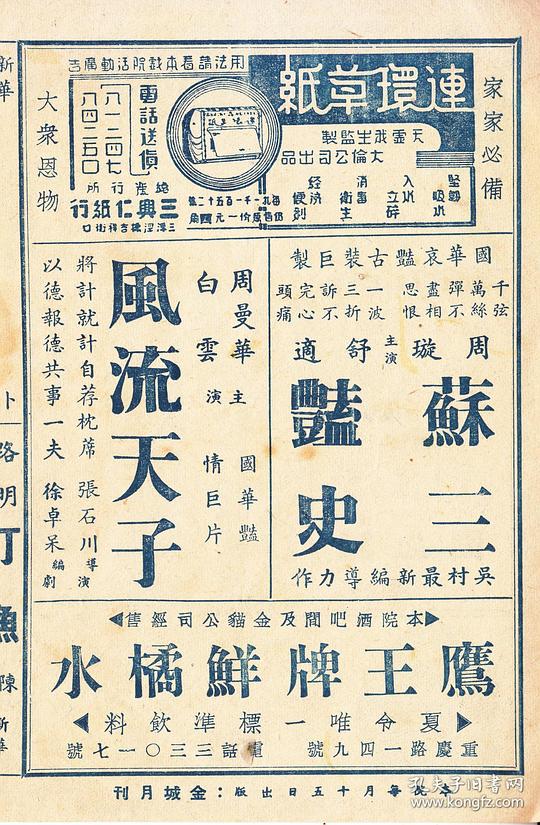 家家必備
大衆恩物
用法請看本戲院活動廣告
連環草紙
天虛我生監製
大倫公司出品
堅韌吸水
入水立碎
消毒衛生
經濟便利
電話送貨
八一二四七
八四二五〇
三興仁紙行
國華哀豔古裝巨製
千弦萬絲彈不盡相思恨
一波三折訴不完心頭痛
周璇 舒適 主演
蘇三豔史
吳村最新編導力作
周曼華
白雲
主演
國華豔情巨片
風流天子
將計就計自荐枕蓆
以德報德共事一夫
張石川導演
徐卓呆編劇
本院酒吧間及金貓公司經售
鷹王牌鮮橘水
夏令唯一標準飲料
重慶路一四九號
電話三三〇一七號
本院每月十五日出版：金城月刊
新華
路明
陳
新華
孔夫子旧书网
www.kongfz.com